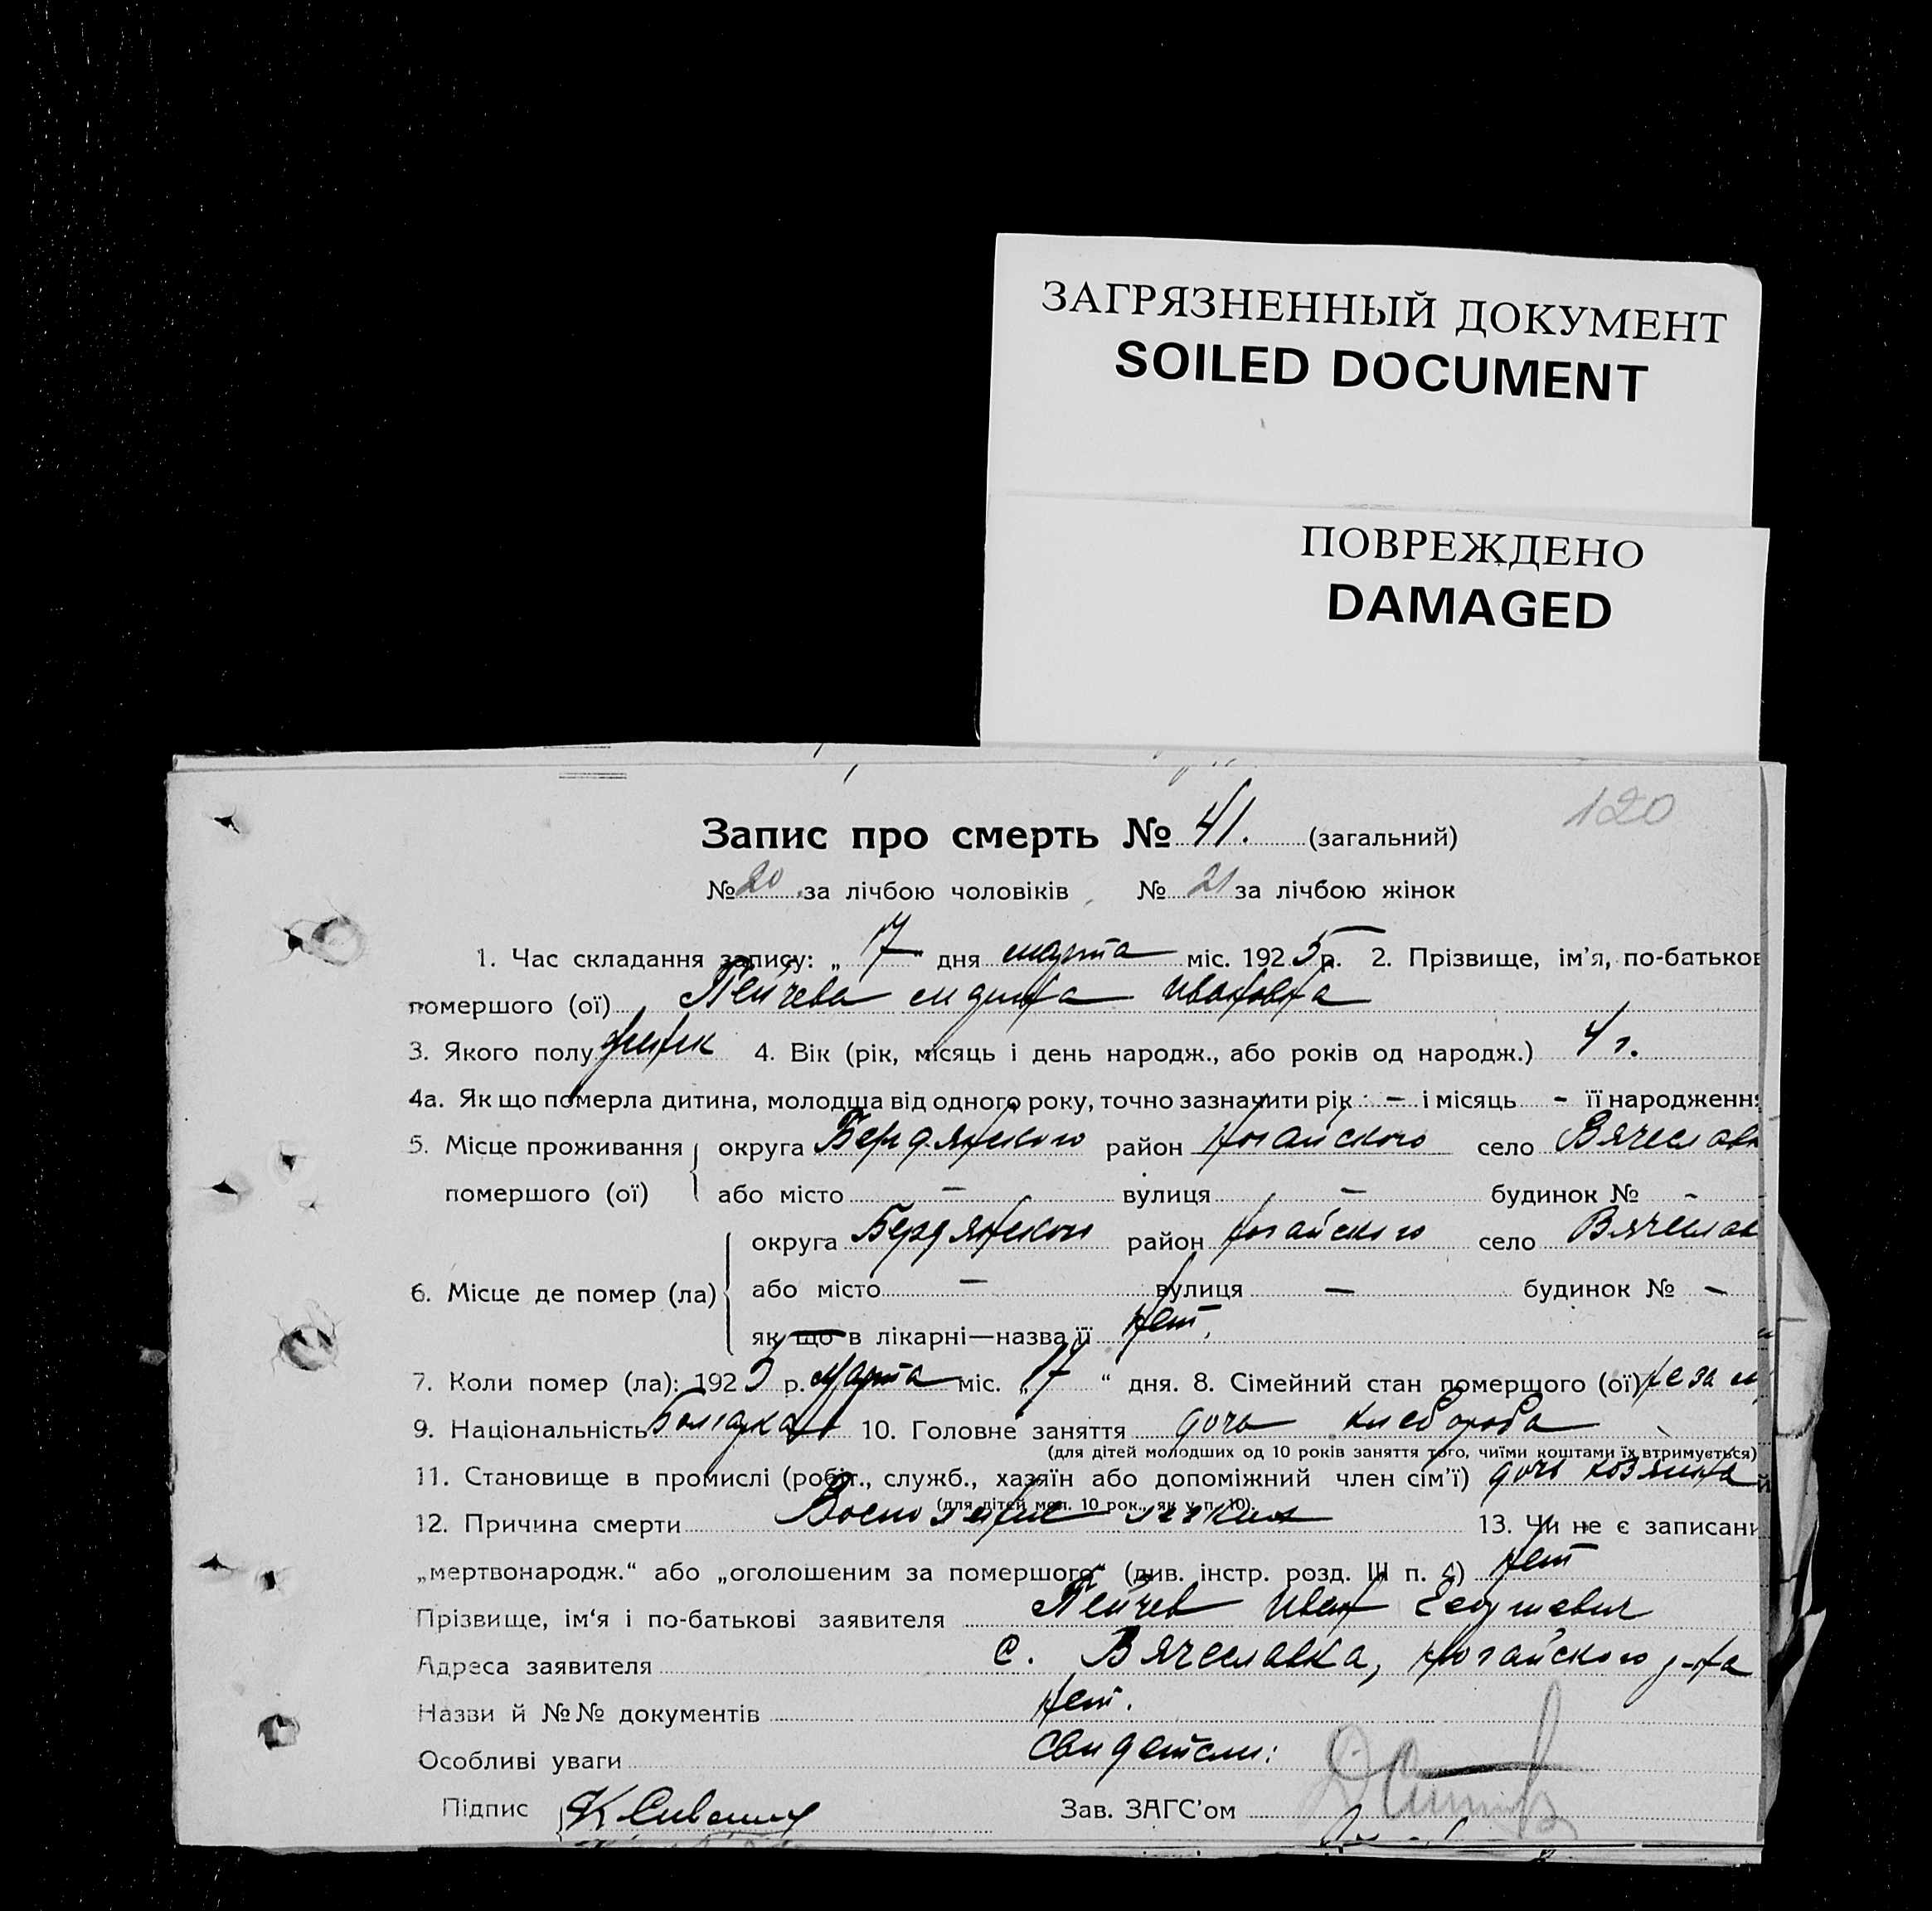 ЗАГРЯЗНЕННЫЙ ДОКУМЕНТ
SOILED DOCUMENT
ПОВРЕЖДЕНО
DAMAGED
120
Запис про смерть № 41. (загальний)
№ 20 за лічбою чоловіків № 21 за лічбою жінок
1. Час складання запису: „17" дня марта міс. 1925 р. 2. Прізвище, ім'я, по-батьков
помершого (ої) Пейчева Ивановна
3. Якого полу женск 4. Вік (рік, місяць і день народж., або років од народж.) 4 г.
4а. Як що померла дитина, молодща від одного року, точно зазначити рік — і місяць - її народженн
5. Місце проживання округа Бердянского район Ногайского село Вячеславк
помершого (ої) або місто — вулиця — будинок № -
округа Бердянского район Ногайского село Вячеслав
6. Місце де помер (ла) або місто — вулиця — будинок № -
як що в лікарні—назва її нет.
7. Коли помер (ла): 1925 р. Марта міс. „17" дня. 8. Сімейний стан помершого (ої) не зам
9. Національність Болгарка 10. Головне заняття дочь хлебороба
(для дітей молодших од 10 років заняття того, чиїми коштами їх втримується)
11. Становище в промислі (робіт., служб., хазяїн або допоміжний член сім'ї) дочь хозяина
(для дітей мол. 10 рок., як у п. 10).
12. Причина смерти Воспаление легких 13. Чи не є записани
„мертвонародж." або „оголошеним за помершого" (див. інстр. розд. III п. 4) нет
Прізвище, ім'я і по-батькові заявителя Пейчев Иван Георгиевич
Адреса заявителя с. Вячеславка, Ногайского р-на
Назви й №№ документів нет.
Особливі уваги свидетели:
Підпис Зав. ЗАГС'ом